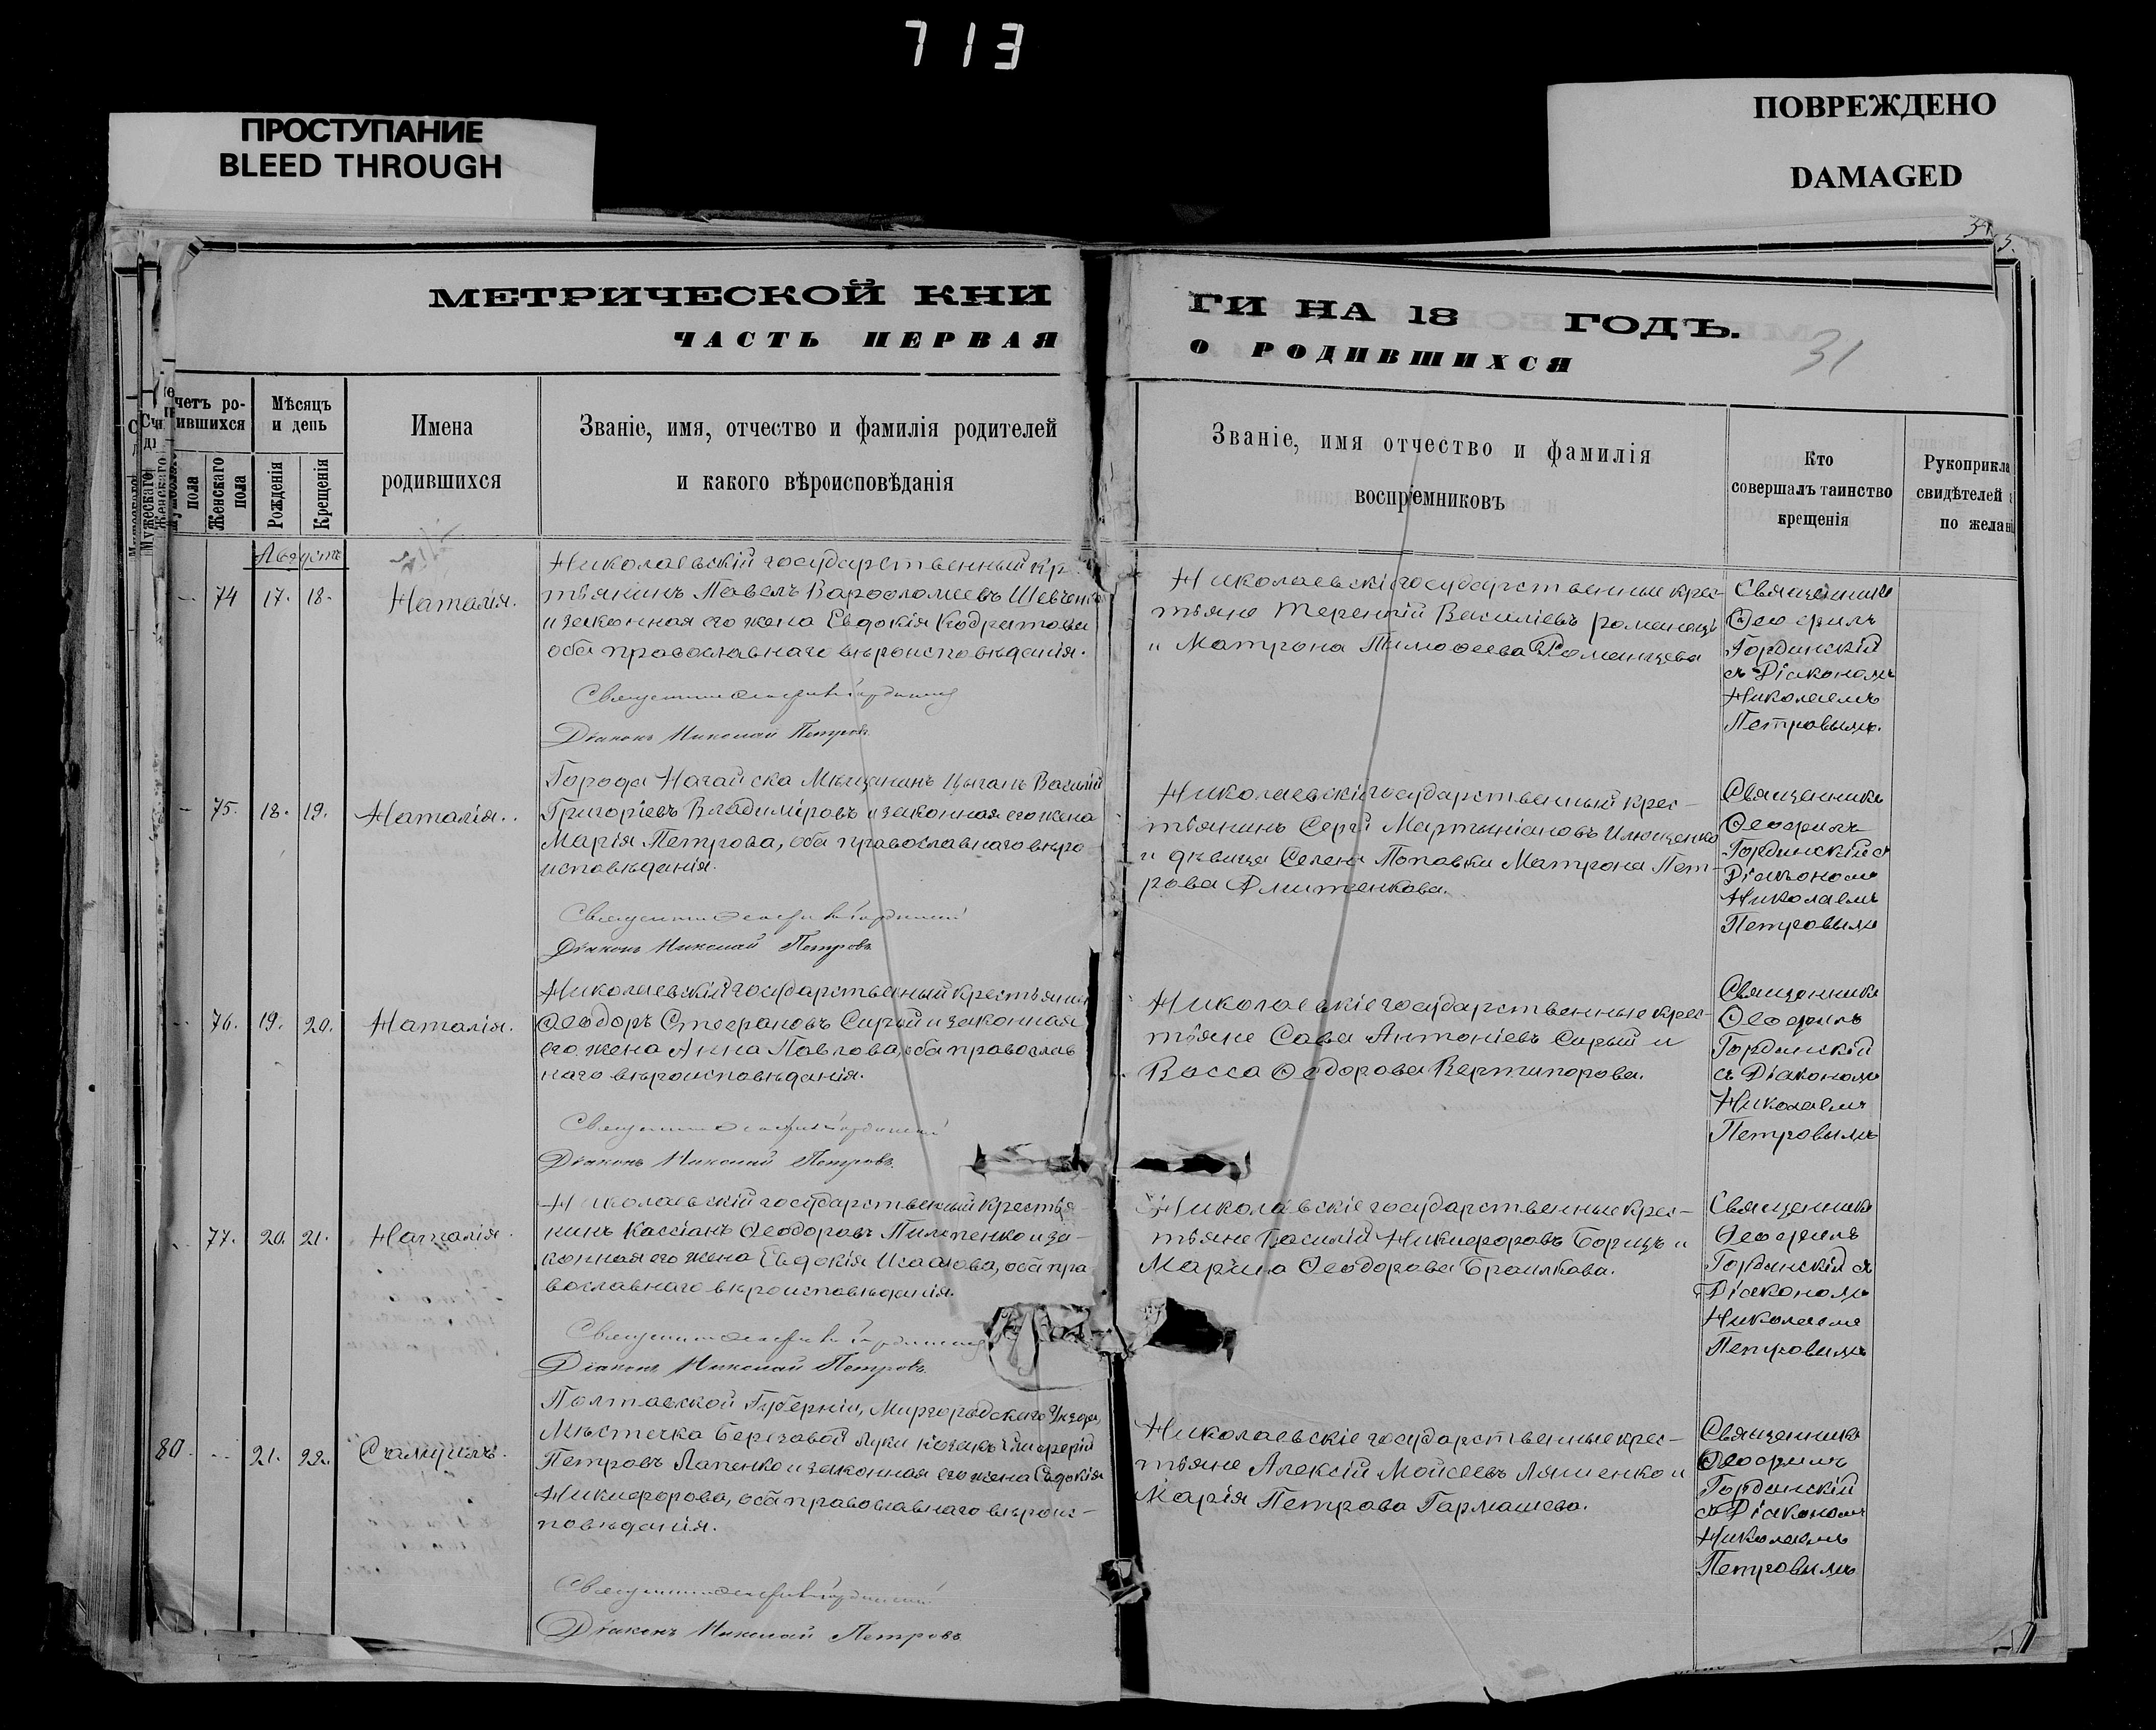 713
ПРОСТУПАНИЕ
BLEED THROUGH
ПОВРЕЖДЕНО
DAMAGED
МЕТРИЧЕСКОЙ КНИ
ЧАСТЬ ПЕРВАЯ
ГИ НА 18 ГОДЪ.
О РОДИВШИХСЯ
31
четъ ро-
ившихся
Мѣсяцъ
и день
Имена
родившихся
Званіе, имя, отчество и фамилія родителей
и какого вѣроисповѣданія
Женскаго
пола
Рожденія
Крещенія
Званіе, имя отчество и фамилія
воспріемниковъ
Кто
совершалъ таинство
крещенія
Рукоприкла
свидѣтелей
по желан
Августъ
74 17. 18. Наталія.
Николаевскій государственный кр
тьянинъ Павелъ Варфоломеевъ Шевченко
и законная его жена Евдокія Кодратова
оба православнаго вѣроисповѣданія.
Діаконъ Николай Петровъ
Николаевскіе государственные крес-
тьяне Терентій Василіевъ Роменецъ
и Матрона Тимоѳеева Роменцева
Священникъ
Ѳеофилъ
Гординскій
съ Діакономъ
Николаемъ
Петровымъ.
75. 18. 19. Наталія.
Города Ногайска Мѣщанинъ Цыганъ Василій
Григоріевъ Владиміровъ и законная его жена
Марія Петрова, оба православнаго вѣро
исповѣданія.
Діаконъ Николай Петровъ
Николаевскій государственный крес-
тьянинъ Сергій Мартыніановъ Илющенко
и дѣвица Селена Поповки Матрона Пет-
рова Дмитенкова.
Священникъ
Ѳеофилъ
Гординскій с
Діакономъ
Николаемъ
Петровымъ
76. 19. 20. Наталія.
Николаевскій государственный крестьянин
Ѳеодоръ Стефановъ Сирый и законная
его жена Анна Павлова, оба православ
наго вѣроисповѣданія.
Діаконъ Николай Петровъ.
Николаевскіе государственные крес-
тьяне Сава Антоніевъ Сирый и
Васса Ѳеодорова Вертипорова.
Священникъ
Ѳеофилъ
Гординскій
съ Діакономъ
Николаемъ
Петровымъ
77. 20. 21. Наталія.
Николаевскій государственный крестья
нинъ Кассіанъ Ѳеодоровъ Пилипенко и за-
конная его жена Евдокія Исаакова, оба пра
вославнаго вѣроисповѣданія.
Діаконъ Николай Петровъ.
Николаевскіе государственные крес-
тьяне Василій Никифоровъ Борицъ и
Марина Ѳеодорова Браилкова.
Священникъ
Ѳеофилъ
Гординскій съ
Діакономъ
Николаемъ
Петровымъ
80. 21. 22. Самуилъ.
Полтавской Губерніи, Миргородскаго Уѣзда,
Мѣстечка Березовой Луки козакъ
Петровъ Лапенко и законная его жена Евдокія
Никифорова, оба православнаго вѣроис-
повѣданія.
Діаконъ Николай Петровъ
Николаевскіе государственные крес-
тьяне Алексій Мойсеевъ Ляшенко и
Марія Петрова Гармашева.
Священникъ
Ѳеофилъ
Гординскій
съ Діакономъ
Николаемъ
Петровымъ